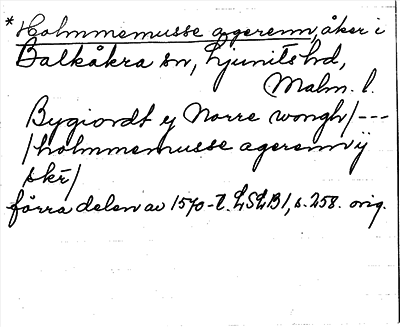 * Holmmemusse agerenn, åker i
Balkåkra sn, Ljunits hd,
Malm. l.
Bygiordt ij Norre wongh/---
/holmmemusse agerenn ij
skr/
förra delen av 1570-t. LSLB1, s. 258. orig.